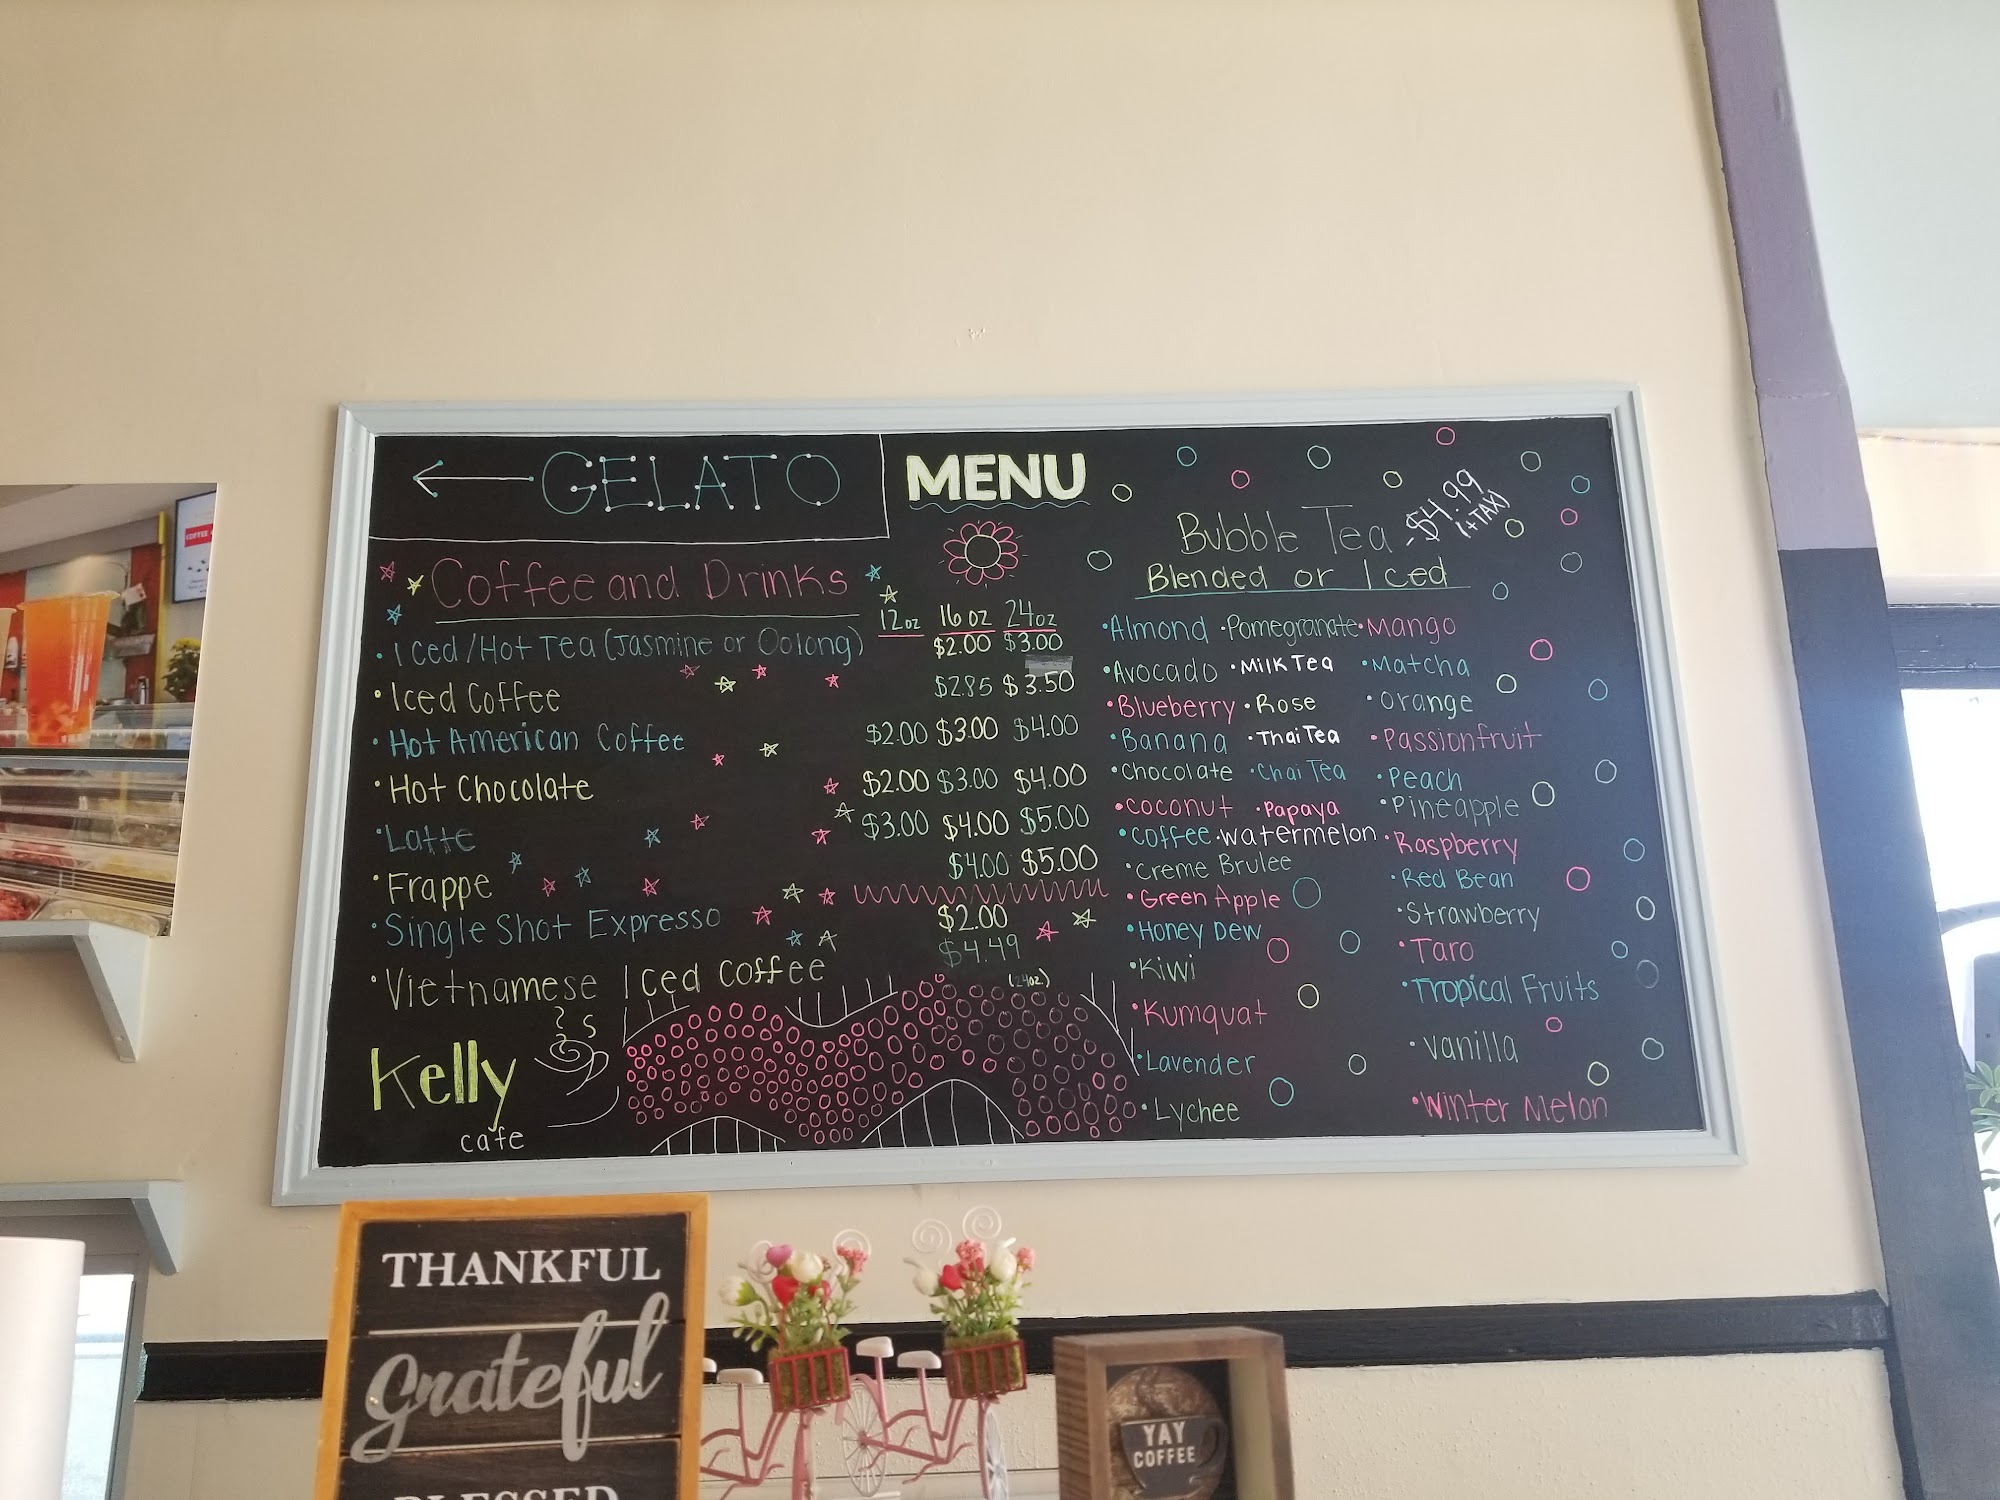 ← GELATO
MENU
Coffee and Drinks
12oz 16oz 24oz
• Iced/Hot Tea (Jasmine or Oolong) $2.00 $3.00
• Iced Coffee $2.85 $3.50
• Hot American Coffee $2.00 $3.00 $4.00
• Hot Chocolate $2.00 $3.00 $4.00
• Latte $3.00 $4.00 $5.00
• Frappe $4.00 $5.00
• Single Shot Expresso $2.00
• Vietnamese Iced Coffee $4.49
(24oz.)
Kelly
cafe
Bubble Tea -$4.99
(+TAX)
Blended or Iced
• Almond • Pomegranate • Mango
• Avocado • Milk Tea • Matcha
• Blueberry • Rose • Orange
• Banana • Thai Tea • Passionfruit
• Chocolate • Chai Tea • Peach
• Coconut • Papaya • Pineapple
• Coffee • Watermelon • Raspberry
• Creme Brulee • Red Bean
• Green Apple • Strawberry
• Honey Dew • Taro
• Kiwi • Tropical Fruits
• Kumquat • Vanilla
• Lavender • Winter Melon
• Lychee
COFFEE
THANKFUL
grateful
BLESSED
YAY
COFFEE